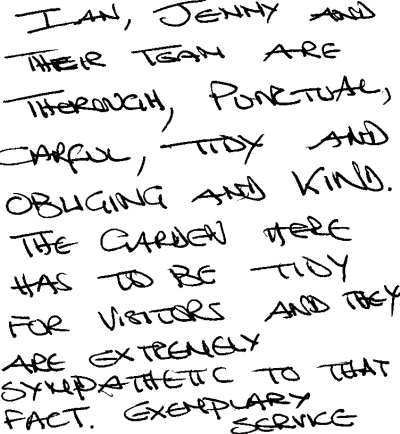 IAN, JENNY AND
THEIR TEAM ARE
THOROUGH, PUNCTUAL,
CARFUL, TIDY AND
OBLIGING AND KIND.
THE GARDEN HERE
HAS TO BE TIDY
FOR VISITORS AND THEY
ARE EXTREMELY
SYMPATHETIC TO THAT
FACT. EXEMPLARY
SERVICE